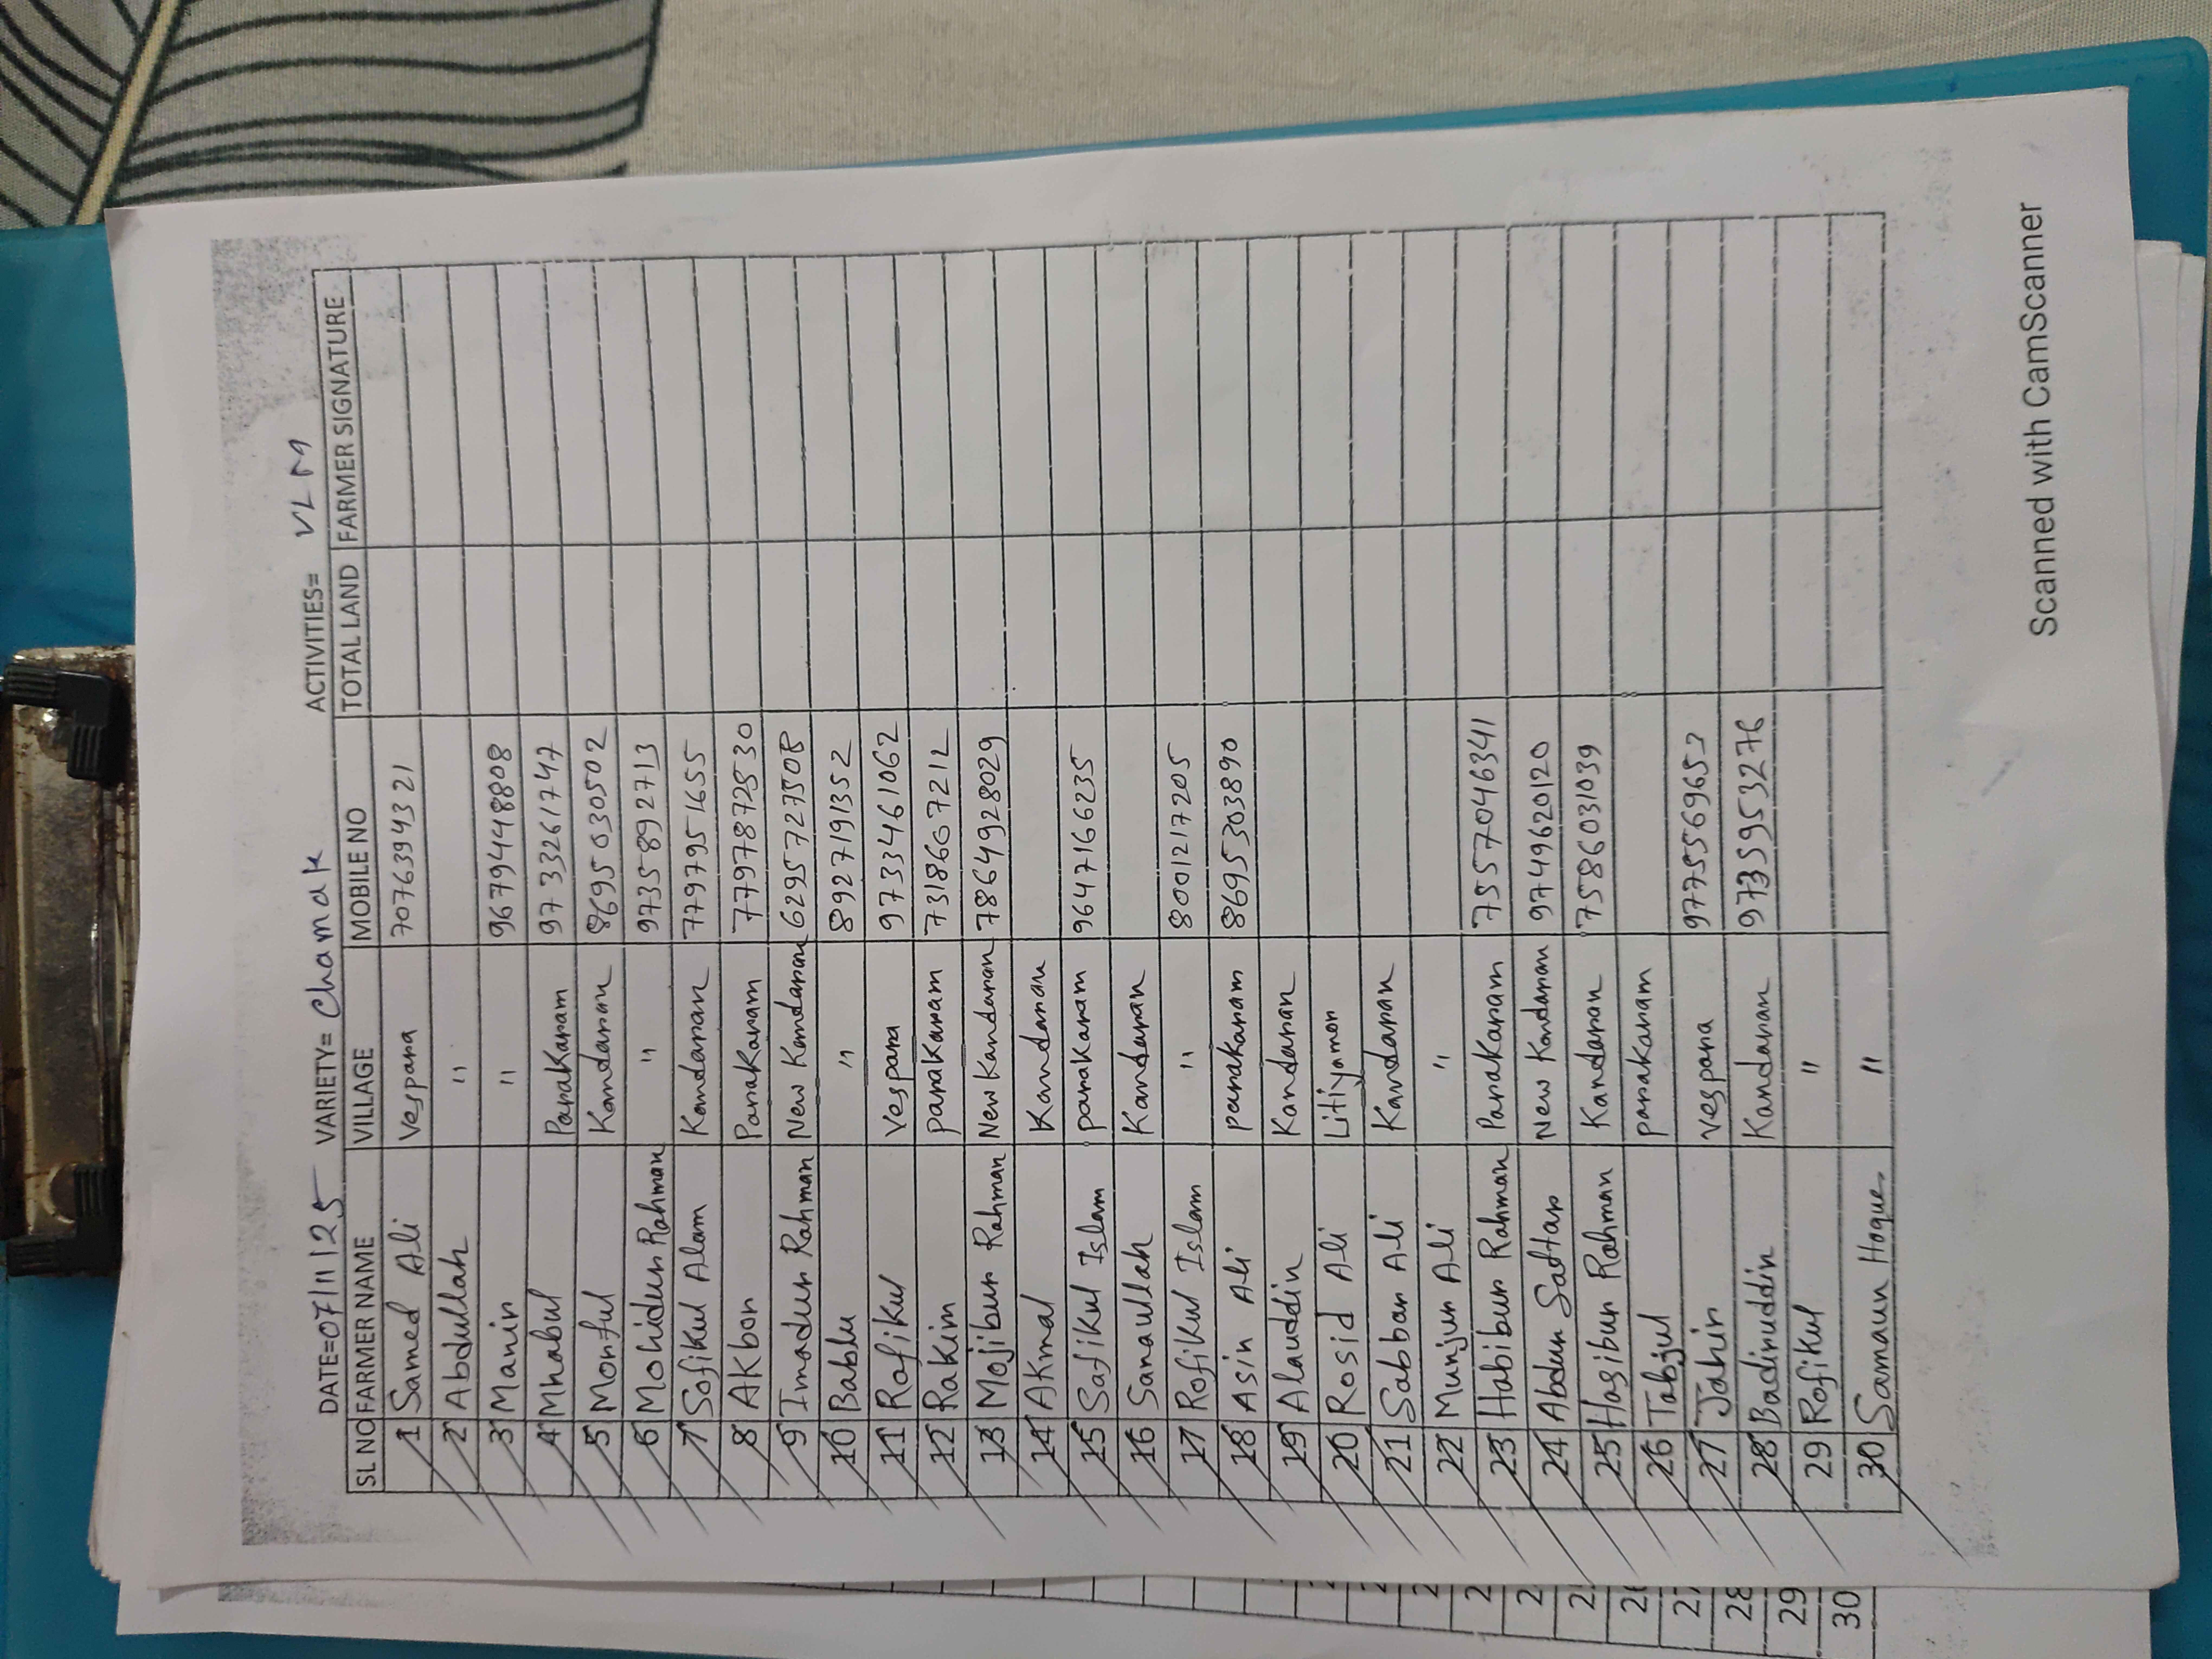 DATE=07/11/25 VARIETY= Chamak ACTIVITIES= VLM
SL NO FARMER NAME VILLAGE MOBILE NO TOTAL LAND FARMER SIGNATURE
1 Samed Ali Vespara 7076394321
2 Abdullah "
3 Manir " 9679448808
4 Mhabul Parakaram 9733261747
5 Monful Kandaran 8695030502
6 Mohidur Rahman " 9735892713
7 Sofikul Alam Kandaran 7797951655
8 Akbar Parakaram 7797872830
9 Imadur Rahman New Kandaran 6295727508
10 Bablu " 8927191352
11 Rofikul Vespara 97334461062
12 Rakin parakaram 7318667212
13 Mojibur Rahman New Kandaran 7864928029
14 Akmal Kandaran
15 Safikul Islam parakaram 9647166235
16 Sanaullah Kandaran
17 Rofikul Islam " 8001217205
18 Asin Ali parakaram 8695303890
19 Alauddin Kandaran
20 Rosid Ali Litiyamon
21 Sabbar Ali Kandaran
22 Munjur Ali "
23 Habibur Rahman Parakaram 7557046341
24 Abdur Sattar New Kandaran 9749620120
25 Hasibur Rahman Kandaran 7586031039
26 Tabjul parakaram
27 Jahir vespara 9775569653
28 Badiruddin Kandaran 9735953276
29 Rofikul "
30 Samaun Hoque "
Scanned with CamScanner
28
29
30